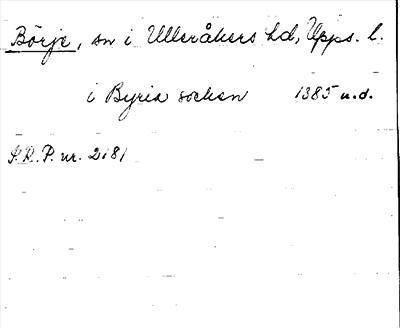 Börje, sn i Ulleråkers hd, Upps. l.
i Byria sockan 1385 u.d.
S.R.P. nr. 2181